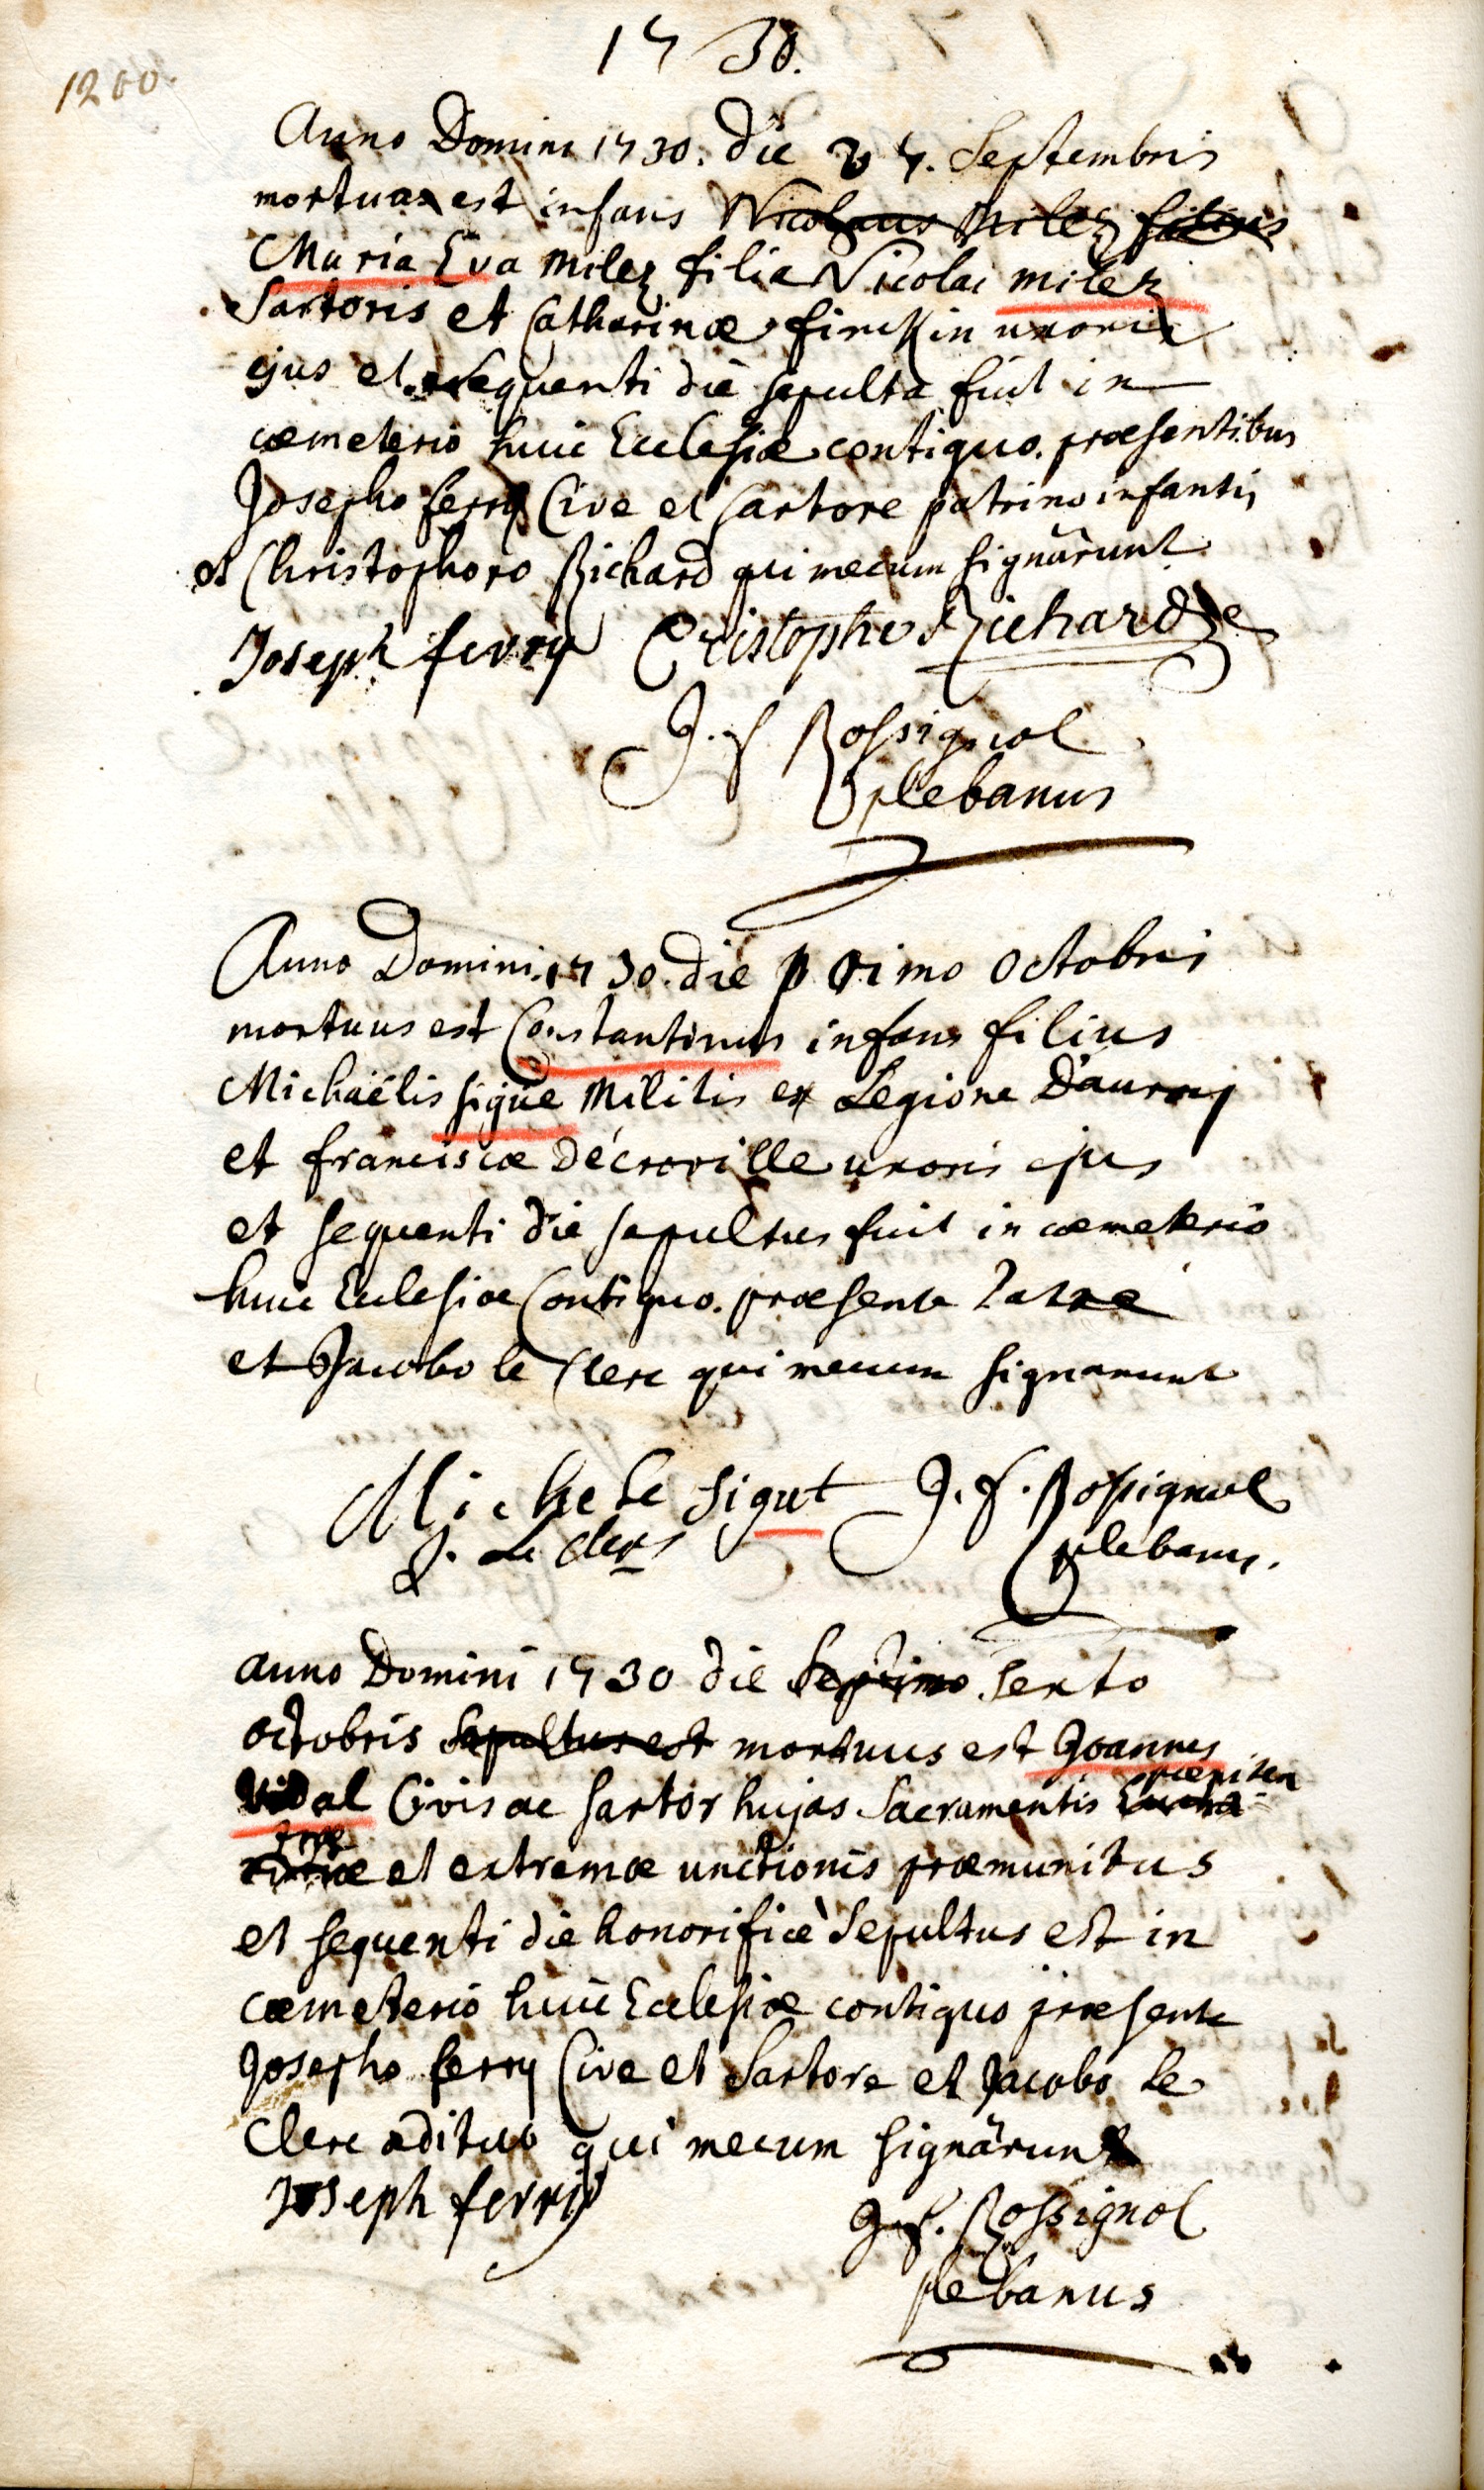 1730.
1200.
Anno Domini 1730. die 27. Septembris
mortua est infans Nicolaus Milez filius
Maria Eva Milez filia Nicolai Milez
Sartoris et Catharinæ finckin uxoris
ejus et sequenti die sepulta fuit in
cœmeterio huic Ecclesiæ contiguo. præsentibus
Josepho ferry Cive et sartore patrino infantis
et Christophoro Richard qui mecum signârunt.
Joseph ferry Cristophe Richard
J. f. Rossignol
plebanus
Anno Domini 1730. die primo Octobris
mortuus est Constantinus infans filius
Michaëlis sigue Militis ex Legione D'auroy
et franciscæ Décroville uxoris ejus
et sequenti die sepultus fuit in cœmeterio
huic Ecclesiæ Contiguo. præsente Patre
et Jacobo le Clerc qui mecum signarunt
Michele Sigut J. f. Rossignol
J. Le Clerc plebanus.
anno Domini 1730 die Septimo Sexto
octobris Sepultus est mortuus est Joannes
pœniten
Vidal Civis ac sartor hujas Sacramentis Eucha-
tiæ
ristiæ et extremæ unctionis præmunitus
et sequenti die honorificè Sepultus est in
cœmeterio huic Ecclesiæ contiguo præsente
Josepho ferry Cive et Sartore et Jacobo le
Clerc ædituo qui mecum signârunt
Joseph ferry
J. f. Rossignol
plebanus